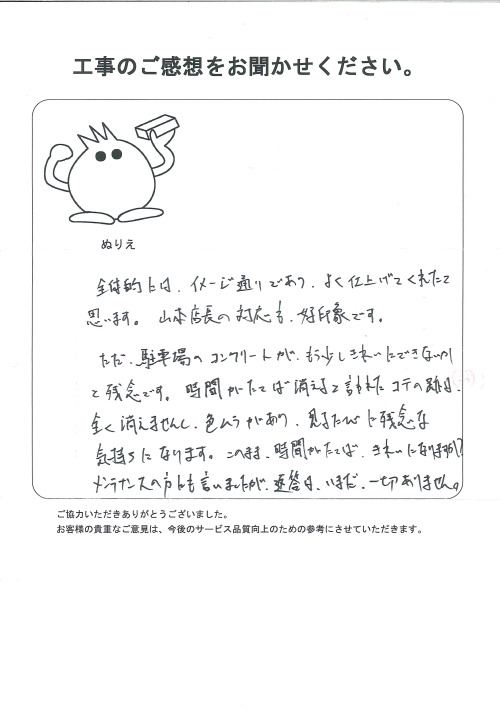 工事のご感想をお聞かせください。
ぬりえ
全体的には、イメージ通りであり、よく仕上げてくれたと
思います。山本店長の対応も、好印象です。
ただ、駐車場のコンクリートが、もう少しきれいにできないか
と残念です。時間がたてば消えると言われたコテの跡は、
全く消えませんし、色ムラがあり、見るたびに残念な
気持ちになります。このまま、時間がたてば、きれいになりますか?
メンテナンスの方にも言いましたが、返答は、いまだ、一切ありません。
ご協力いただきありがとうございました。
お客様の貴重なご意見は、今後のサービス品質向上のための参考にさせていただきます。